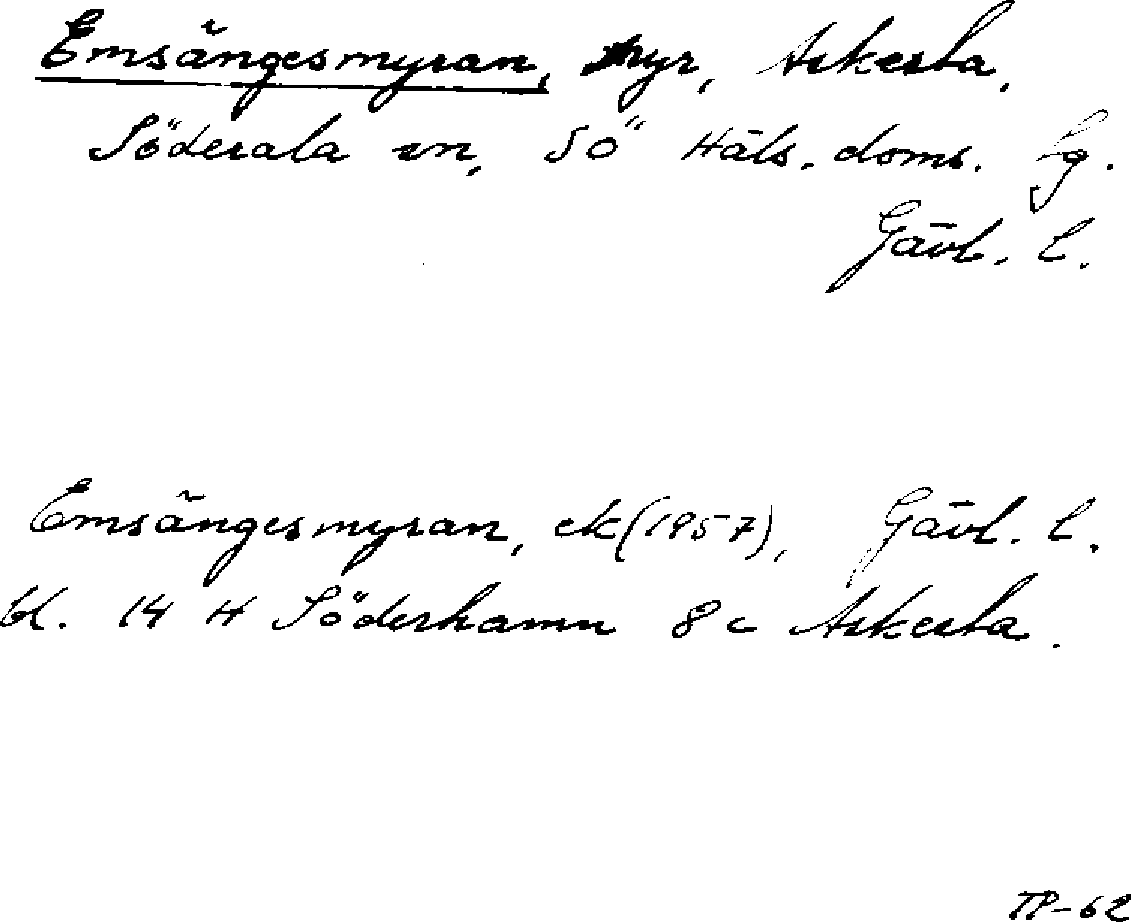 Emsängesmyran, myr, Askesta,
Söderala sn, SÖ Häls. doms. fg.
Gävl. l.
Emsängesmyran, ek (1957), Gävl. l.
bl. 14 H Söderhamn 8 c Askesta.
TP-62